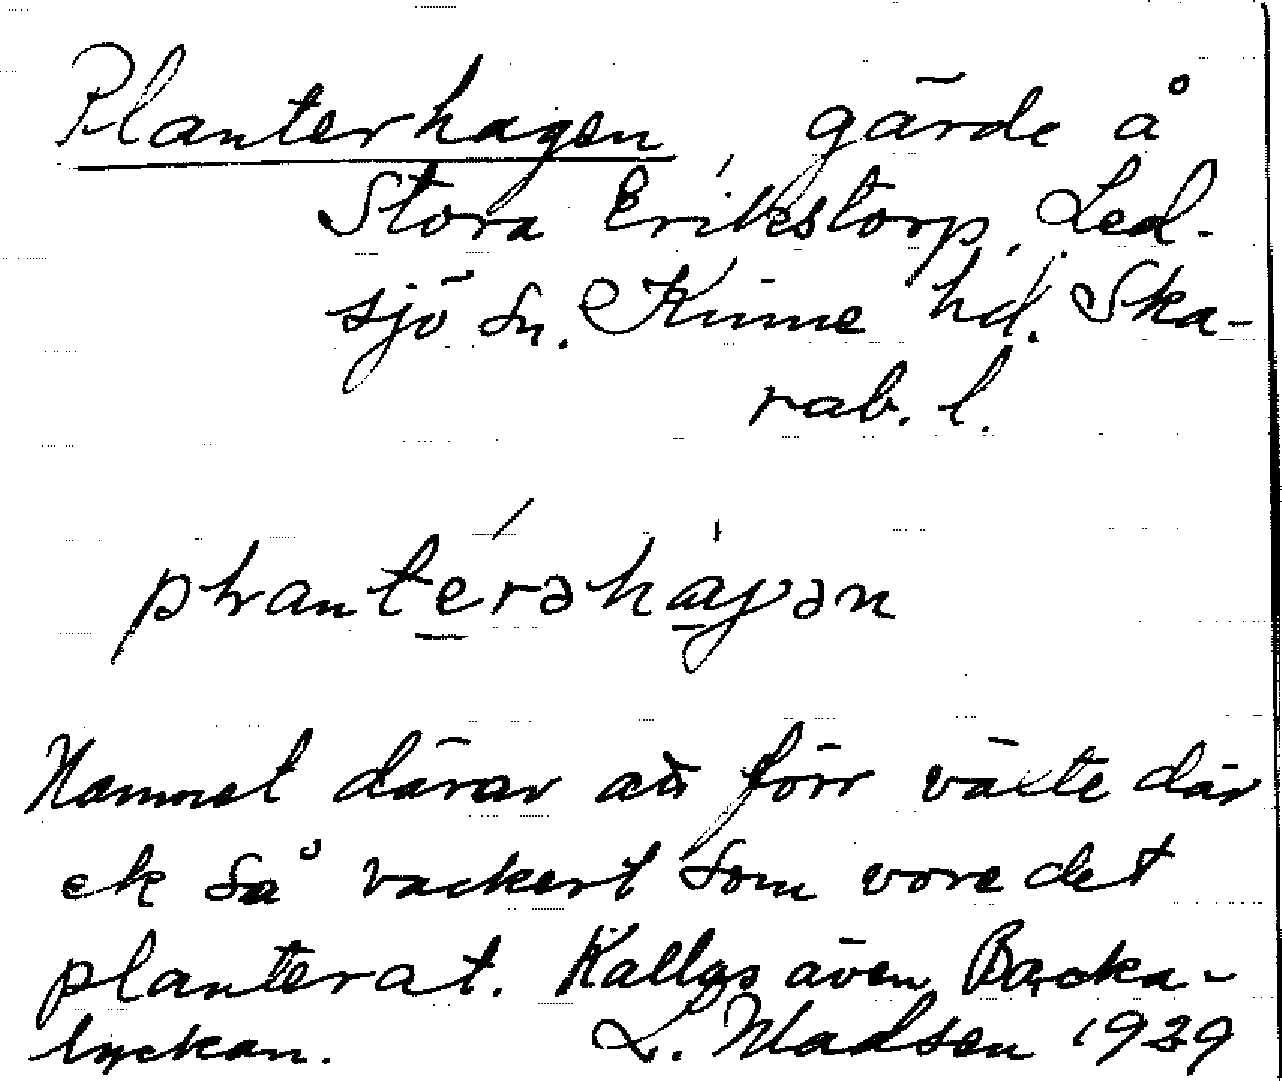 Planterhagen, gärde å
Stora Erikstorp, Led-
sjö sn. Kinne hd. Ska-
rab. l.
plantérəhàgən
Namnet därav att förr växte där
ek så vackert som vore det
planterat. Kallas även Backa-
lyckan. L. Madsen 1929